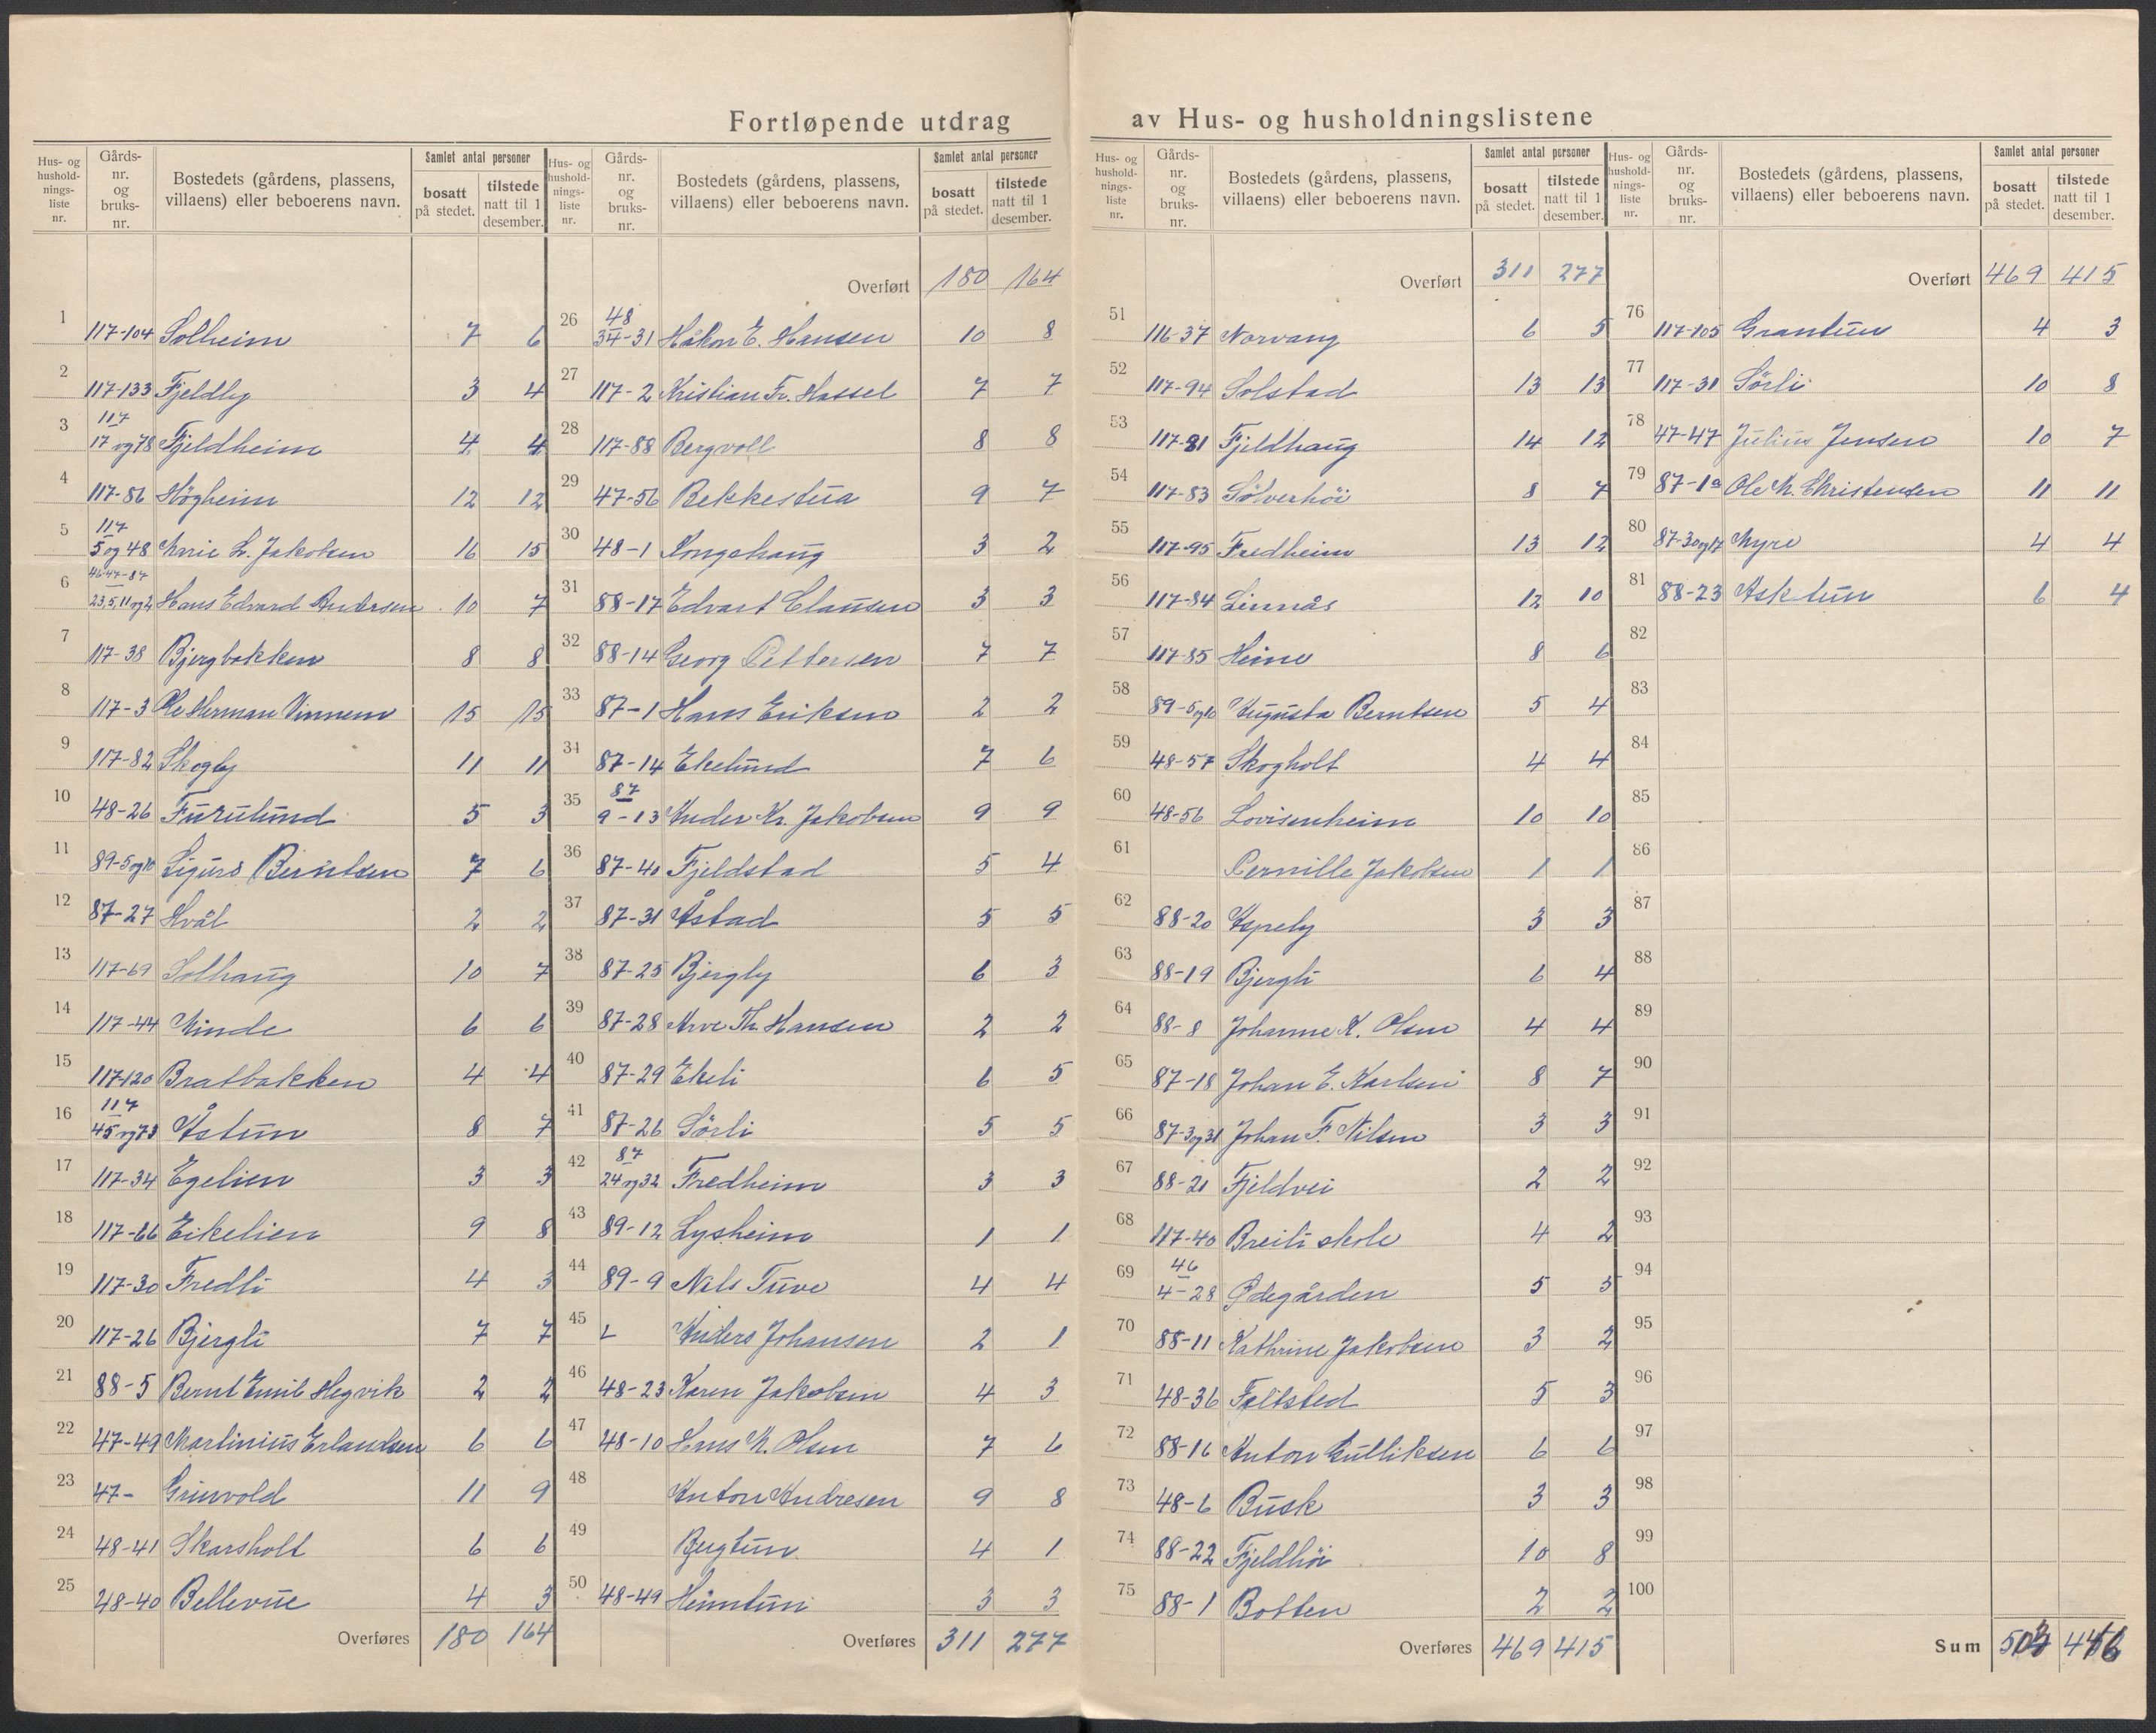 Fortløpende utdrag av Hus- og husholdningslistene
Hus- og husholdnings-liste nr. Gårds-nr. og bruks-nr. Bostedets (gårdens, plassens, villaens) eller beboerens navn. Samlet antal personer bosatt på stedet. tilstede natt til 1 desember.
1 117-104 Solheim 7 6
2 117-133 Fjeldly 3 4
3 117 17 og 78 Fjeldheim 4 4
4 117-86 Høgheim 12 12
5 117 5 og 48 Marie L. Jakobsen 16 15
6 46-47-87 23,5,11 og 2 Hans Edvard Andersen 10 7
7 117-38 Bjergbakken 8 8
8 117-3 Ole Herman Vinnem 15 15
9 117-82 Skogly 11 11
10 48-26 Furulund 5 3
11 89-5og10 Sigurd Berntsen 7 6
12 87-27 Hvål 2 2
13 117-69 Solhaug 10 7
14 117-44 Minde 6 6
15 117-120 Bratbakken 4 4
16 117 45 og 73 Åstun 8 7
17 117-34 Egelien 3 3
18 117-66 Eikelien 9 8
19 117-30 Fredli 4 3
20 117-26 Bjergli 7 7
21 88-5 Bernt Emil Hegvik 2 2
22 47-49 Martinius Erlandsen 6 6
23 47- Grinvold 11 9
24 48-41 Skarsholt 6 6
25 48-40 Bellevue 4 3
Overføres 180 164
Hus- og husholdnings-liste nr. Gårds-nr. og bruks-nr. Bostedets (gårdens, plassens, villaens) eller beboerens navn. Samlet antal personer bosatt på stedet. tilstede natt til 1 desember.
Overført 180 164
26 48 34-31 Håkon E. Hansen 10 8
27 117-2 Kristian Fr. Hassel 7 7
28 117-88 Bergvoll 8 8
29 47-56 Bekkestua 9 7
30 48-1 Kongehaug 3 2
31 88-17 Edvart Clausen 3 3
32 88-14 Georg Pettersen 7 7
33 87-1 Hans Eriksen 2 2
34 87-14 Ekelund 7 6
35 87 9-13 Ander Kr. Jakobsen 9 9
36 87-40 Fjeldstad 5 4
37 87-31 Åstad 5 5
38 87-25 Bjergly 6 3
39 87-28 Arve Th. Hansen 2 2
40 87-29 Ekeli 6 5
41 87-26 Sörli 5 5
42 87 24 og 32 Fredheim 3 3
43 89-12 Lysheim 1 1
44 89-9 Nils Tuve 4 4
45 Anders Johansen 2 1
46 48-23 Karen Jakobsen 4 3
47 48-10 Hans M. Olsen 7 6
48 Anton Andresen 9 8
49 Bergtun 4 1
50 48-49 Heimtun 3 3
Overføres 311 277
Hus- og husholdnings-liste nr. Gårds-nr. og bruks-nr. Bostedets (gårdens, plassens, villaens) eller beboerens navn. Samlet antal personer bosatt på stedet. tilstede natt til 1 desember.
Overført 311 277
51 116-37 Norvang 6 5
52 117-94 Solstad 13 13
53 117-81 Fjeldhaug 14 12
54 117-83 Sölverhöi 8 7
55 117-95 Fredheim 13 12
56 117-84 Linnås 12 10
57 117-85 Heimo 8 6
58 89-5og10 Augusta Berntsen 5 4
59 48-57 Skogholt 4 4
60 48-56 Lovisenheim 10 10
61 Pernille Jakobsen 1 1
62 88-20 Aspely 3 3
63 88-19 Bjergli 6 4
64 88-8 Johanne K. Olsen 4 4
65 87-18 Johan E. Karlsen 8 7
66 87-3og31 Johan F. Nilsen 3 3
67 88-21 Fjeldvei 2 2
68 117-40 Breili skole 4 2
69 46 4-28 Ødegården 5 5
70 88-11 Kathrine Jakobsen 3 2
71 48-36 Feltsted 5 3
72 88-16 Anton Gulliksen 6 6
73 48-6 Busk 3 3
74 88-22 Fjeldhöi 10 8
75 88-1 Botten 2 2
Overføres 469 415
Hus- og husholdnings-liste nr. Gårds-nr. og bruks-nr. Bostedets (gårdens, plassens, villaens) eller beboerens navn. Samlet antal personer bosatt på stedet. tilstede natt til 1 desember.
Overført 469 415
76 117-105 Grantun 4 3
77 117-31 Sörli 10 8
78 47-47 Julius Jensen 10 7
79 87-1a Ole M. Christensen 11 11
80 87-30og17 Myre 4 4
81 88-23 Asktun 6 4
82
83
84
85
86
87
88
89
90
91
92
93
94
95
96
97
98
99
100
Sum